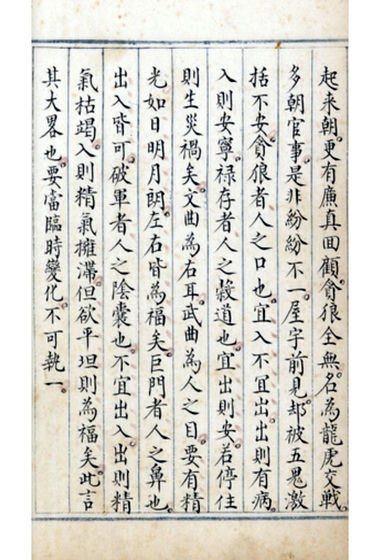 起来朝。更有廉真回顧。貪狼全無。名為龍虎交戰。
多朝官事是非紛紛不一。屋宇前見却被五鬼激
括不安。貪狼者人之口也。宜入不宜出。出則有病。
入則安寧。禄存者人之穀道也。宜出則安。若停住
則生災禍矣。文曲為右耳。武曲為人之目。要有精
光如日明月朗。左右皆為福矣。巨門者人之鼻也。
出入皆可。破軍者人之陰囊也。不宜出入。出則精
氣枯竭。入則精氣擁滯。但欲平坦則為福矣。此言
其大畧也。要當臨時變化。不可執一。